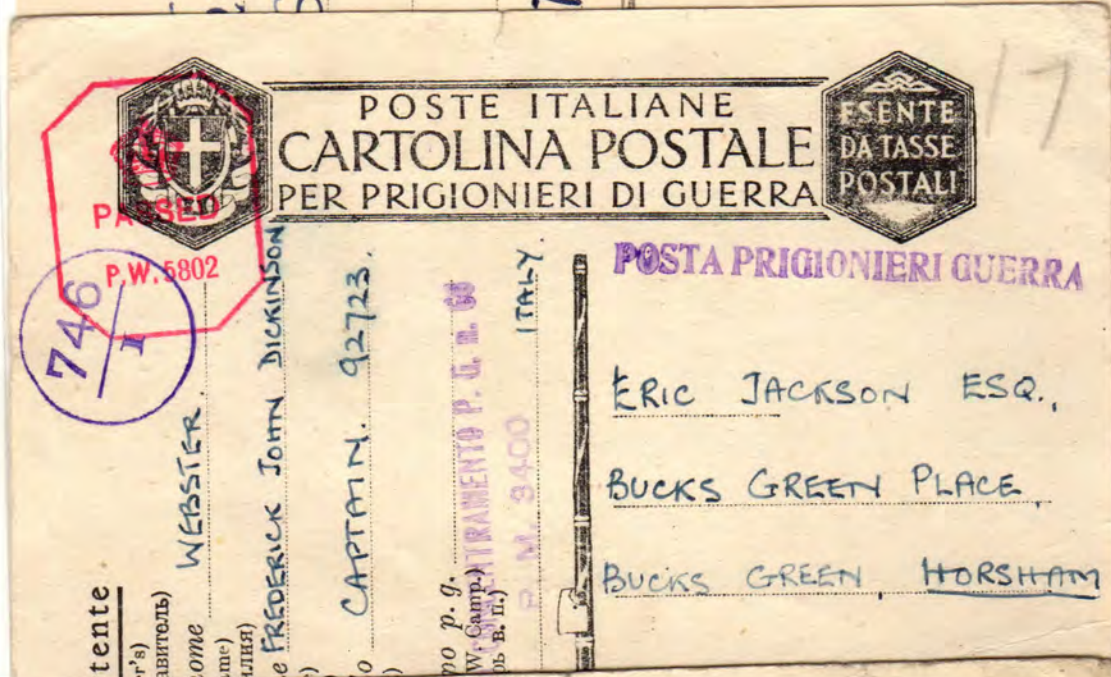 POSTE ITALIANE
CARTOLINA POSTALE
PER PRIGIONIERI DI GUERRA
ESENTE
DA TASSE
POSTALI
17
PASSED
P.W. 5802
746
I
POSTA PRIGIONIERI GUERRA
ERIC JACKSON ESQ.,
BUCKS GREEN PLACE
BUCKS GREEN HORSHAM
tente
r's)
авитель)
ome WEBSTER.
ame)
илия)
e FREDERICK JOHN DICKINSON
e)
CAPTAIN. 92723.
o
)
po p. g.
W Camp.)
рь в. п.)
P. M. 3400
ITALY.